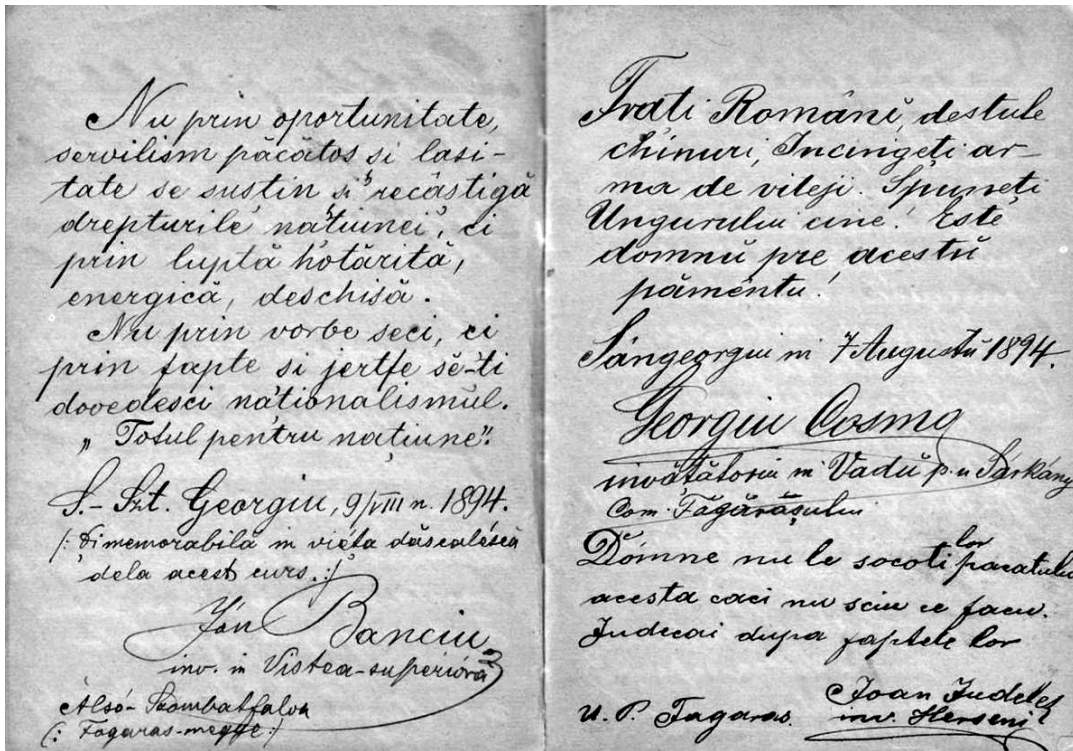 Nu prin oportunitate,
servilism păcătos si lasi-
tate se sustin și recâstigă
drepturile națiunei, ci
prin luptă hotărită,
energică, deschisă.
Nu prin vorbe seci, ci
prin fapte si jertfe sĕ-ti
dovedesci naționalismul.
„Totul pentru națiune".
S.-Szt. Georgiu, 9/VIII n. 1894.
/: Di memorabilă in viéta dăscalésca
dela acest curs. :/
Ión Banciu
inv. in Vistea-superióră
Alsó-Szombatfalva
(: Fogaras-megye :)
Frati Români, destule
chinuri, Incingeți ar-
ma de viteji. Spuneți
Ungurului cine! Este
domnŭ pre acestŭ
pămêntu!
Sângeorgiu in 7 Augustŭ 1894.
Georgiu Cosma
invătătoriu in Vadŭ p. u Sárkány
Com. Făgărășului
Dómne nu le socoti lor pacatulu
acesta caci nu sciu ce facu.
Judecai dupa faptele lor
Ioan Judele
inv. Herseni
U. P. Fagaras.